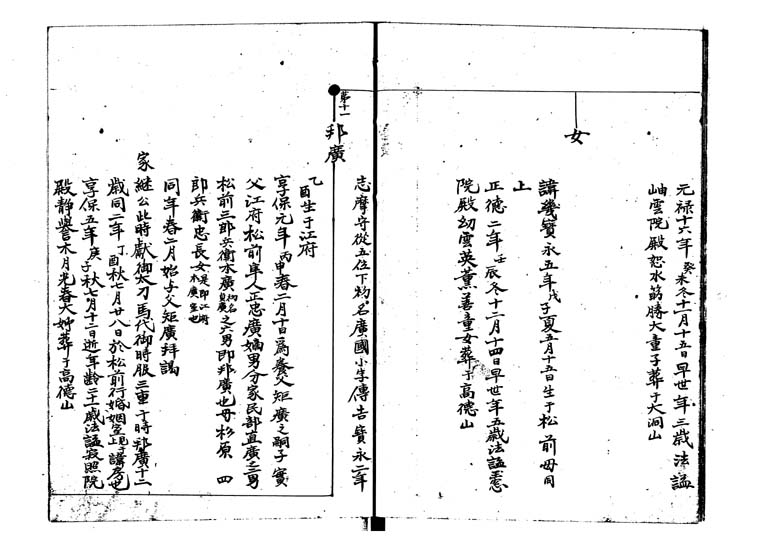 元禄十六年癸未冬十一月十五日早世年三歳法諡
岫雲院殿恕水笏勝大童子葬于大洞山
女
諱磯寳永五年戊子夏五月十五日生于松前母同
上
正徳二年壬辰冬十二月十四日早世年五歳法諡
院殿幻雲英薫善童女葬于高徳山
志摩守從五位下初名廣國小字傳吉寳永二年
第十一
邦廣
乙酉生于江府
享保元年丙申春二月十日爲養父矩廣之嗣子實
父江府松前隼人正忠廣嫡男分家民部直廣之三男
松前三郎兵衛本廣初名之六男即邦廣也母杉原四
郎兵衛忠長女
同年春二月始与父矩廣拝謁
家継公此時献御太刀馬代御時服三重于時邦廣十二
歳同二年丁酉秋七月廿八日於松前行婚姻
享保五年庚子秋七月十二日逝年齢二十一歳法諡寂照院
殿静誉木月光春大姉葬于高徳山